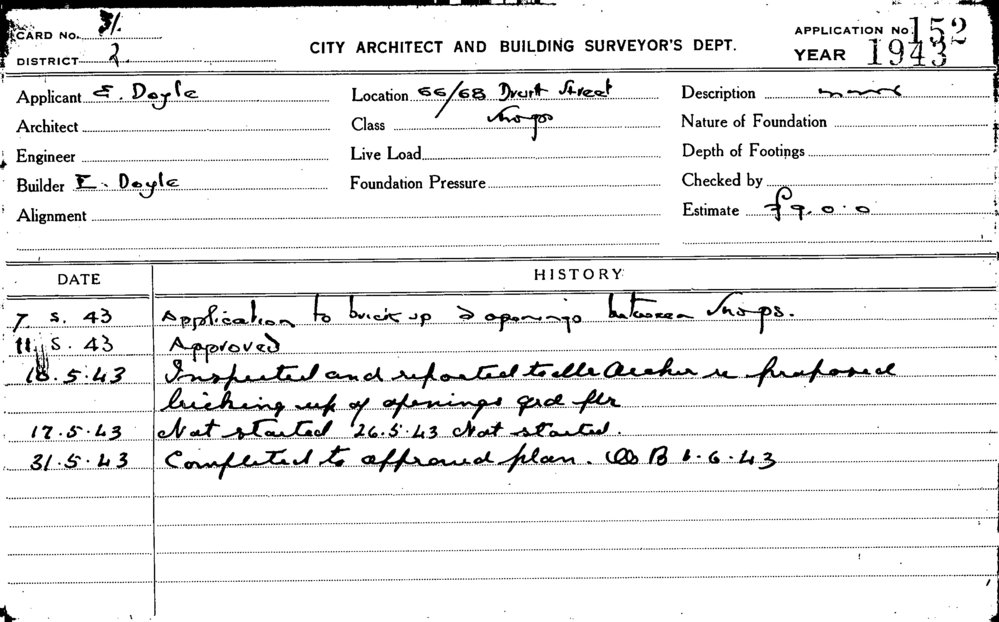 CARD No. 31.
DISTRICT 2.
CITY ARCHITECT AND BUILDING SURVEYOR'S DEPT.
APPLICATION No. 152
YEAR 1943
Applicant E. Doyle
Location 66/68 Druitt Street
Description
Architect
Class Shops
Nature of Foundation
Engineer
Live Load
Depth of Footings
Builder E. Doyle
Foundation Pressure
Checked by
Alignment
Estimate £9.0.0
DATE HISTORY
7. 5. 43 Application to brick up 2 openings between Shops.
11. 5. 43 Approved
18.5.43 Inspected and reported to re proposed
bricking up of openings grd flr
17.5.43 Not started 26.5.43 Not started.
31.5.43 Completed to approved plan. B 1.6.43